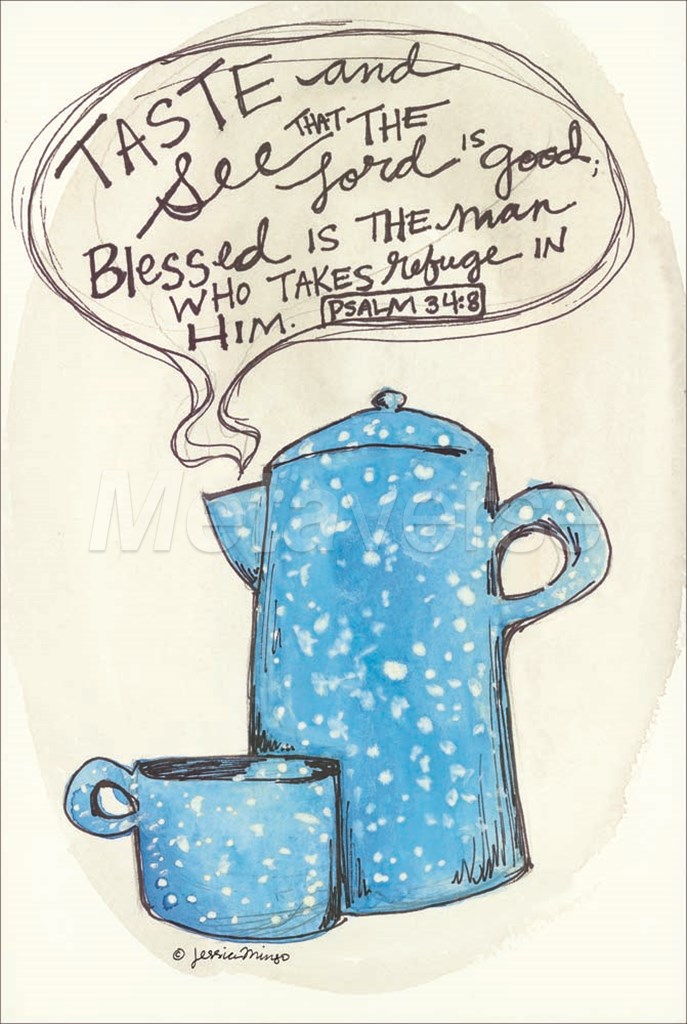 TASTE and
See THAT THE
Lord is good;
Blessed IS THE man
WHO TAKES Refuge IN
HIM. PSALM 34:8
Metaverse
© Jessica Mingo